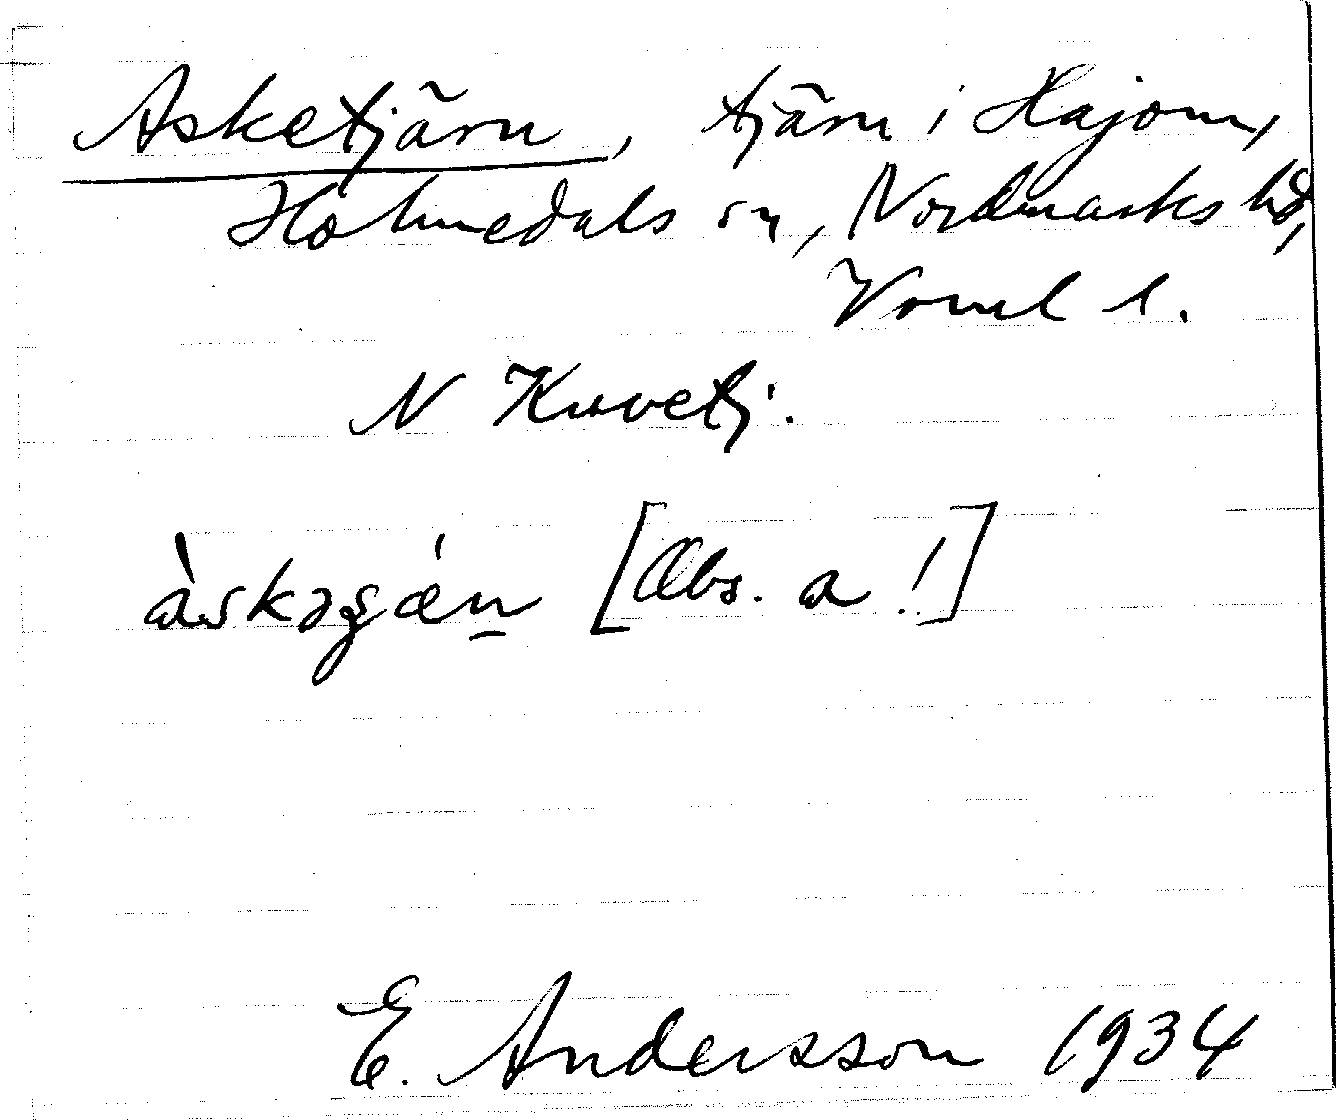 Asketjärn, tjärn i Hajom,
Holmedals sn, Nordmarks hd,
Värml l.
N Kuvetj.
àskəʂǽn [Obs. a!]
E. Andersson 1934